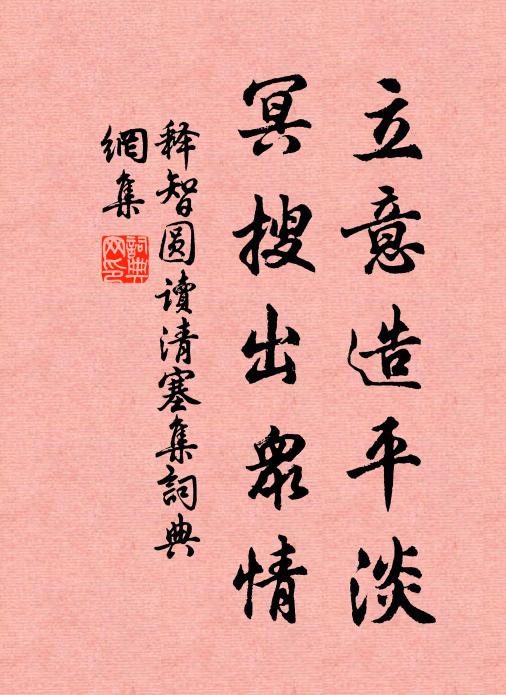 立意造平淡
冥搜出眾情
释智圆读清塞集詞典
網集
詞典
网印